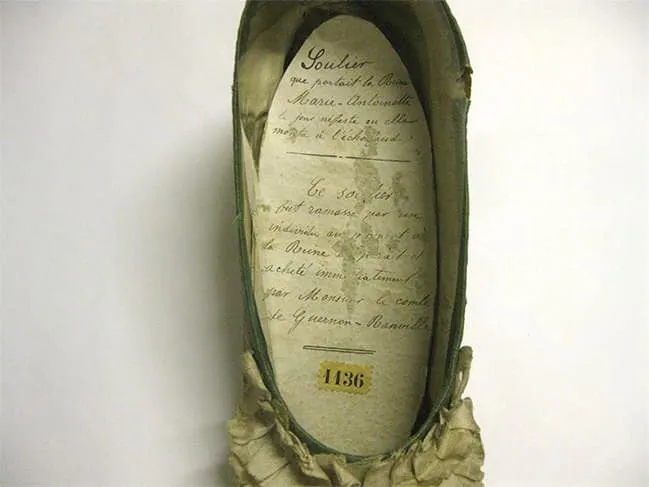 Soulier
que portait la Reine
Marie-Antoinette
le jour néfaste où elle
monta à l'échafaud.
Ce soulier
fut ramassé par un
individu au moment où
la Reine
et
acheté immédiatement
par Monsieur le comte
de Guernon-Ranville
1136